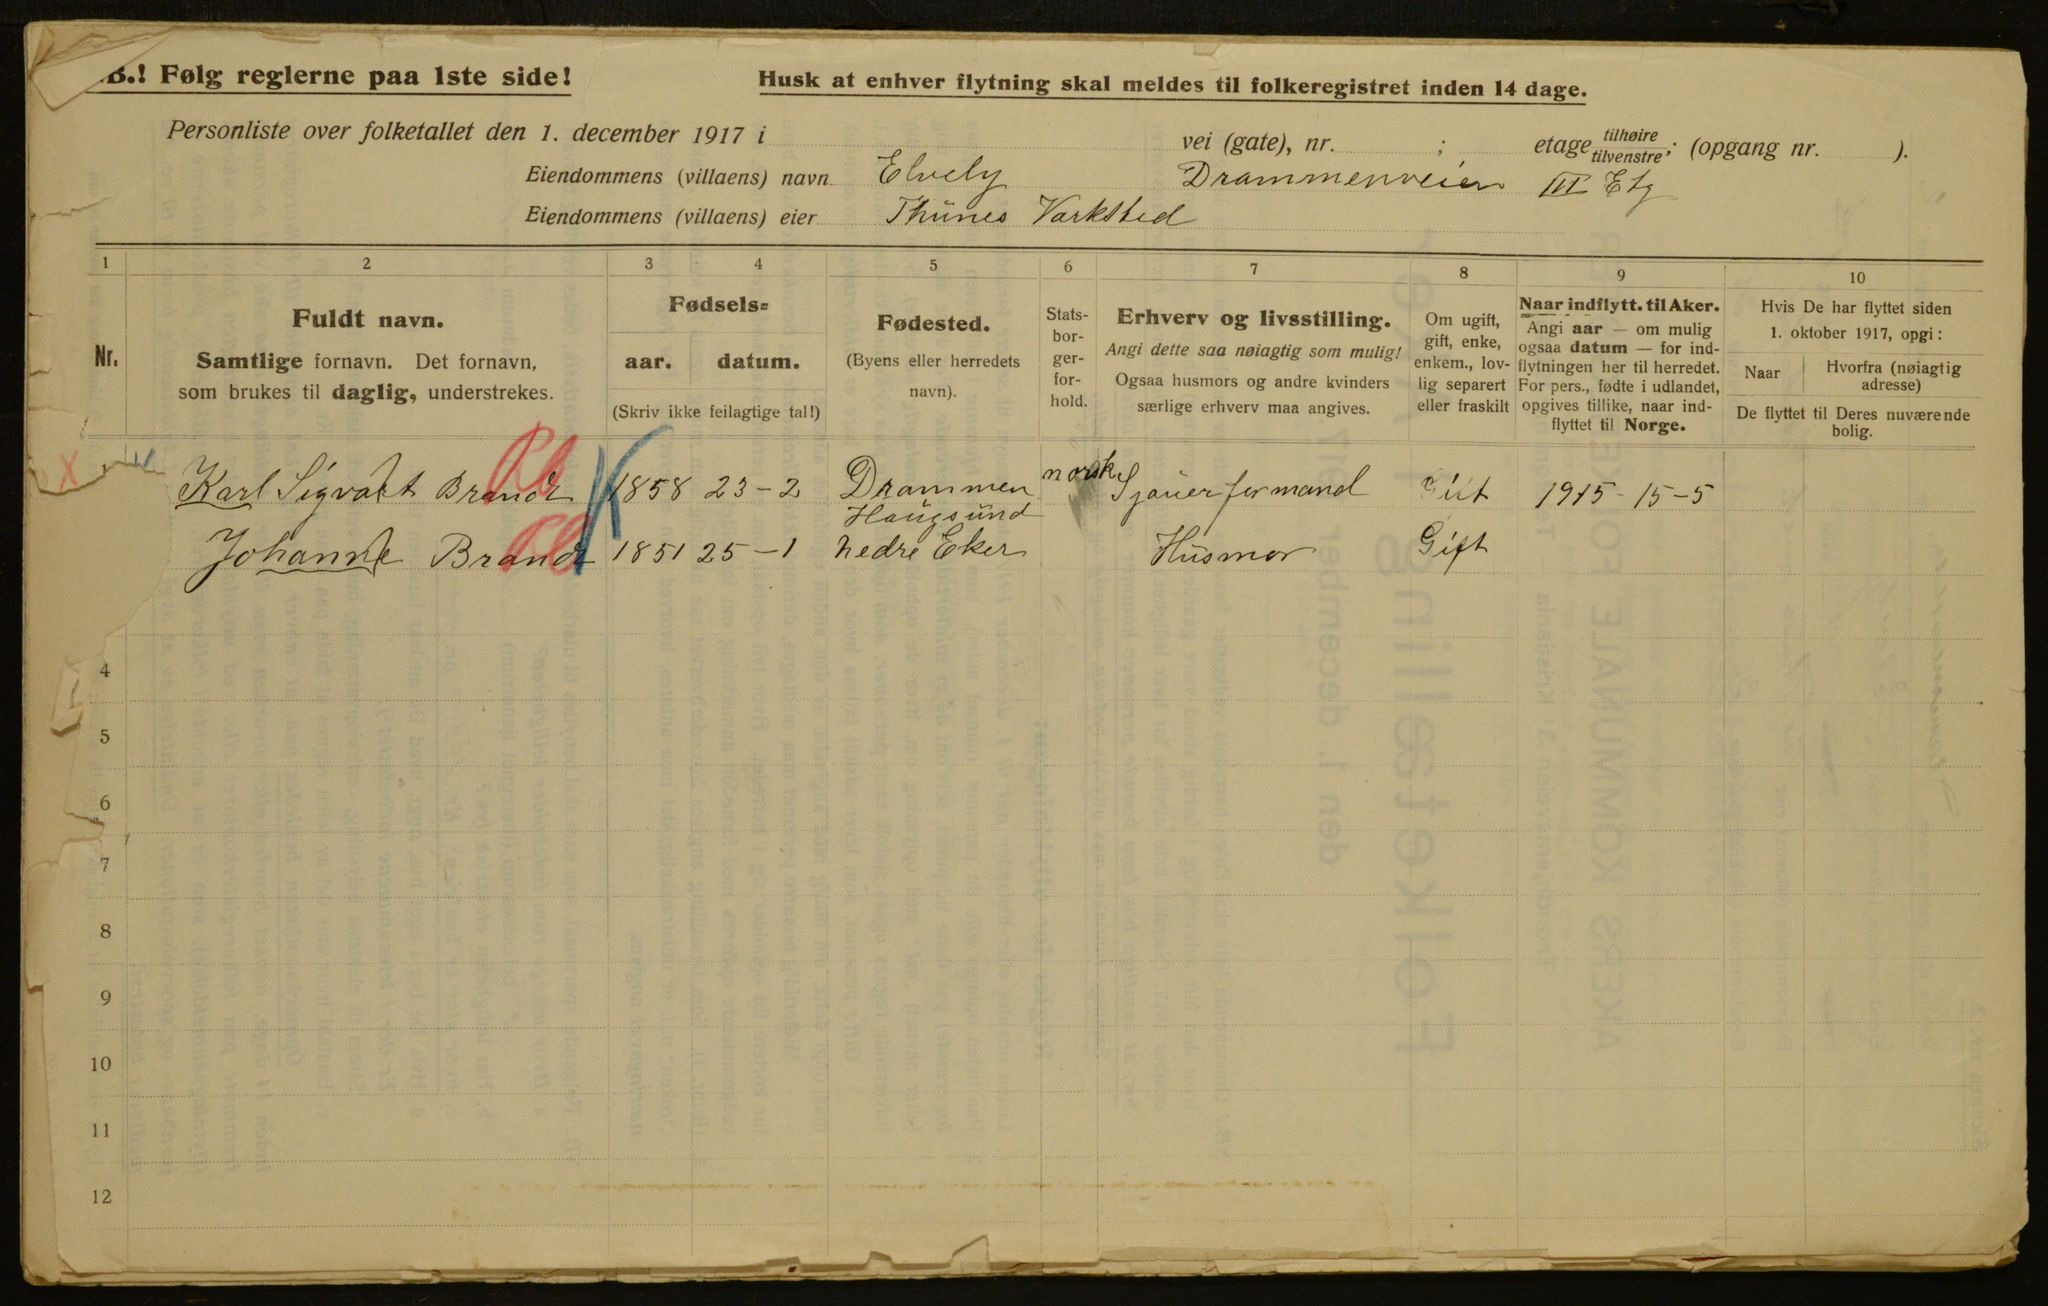 .B.! Følg reglerne paa 1ste side!
Husk at enhver flytning skal meldes til folkeregistret inden 14 dage.
Personliste over folketallet den 1. december 1917 i vei (gate), nr. ; etage tilhøire / tilvenstre ; (opgang nr. ).
Eiendommens (villaens) navn Elvely Drammenveien III Etg
Eiendommens (villaens) eier Thünes Varksted
1 2 3 4 5 6 7 8 9 10
Nr.
Fuldt navn.
Samtlige fornavn. Det fornavn,
som brukes til daglig, understrekes.
Fødsels=
aar. datum.
(Skriv ikke feilagtige tal!)
Fødested.
(Byens eller herredets
navn).
Stats-
bor-
ger-
for-
hold.
Erhverv og livsstilling.
Angi dette saa nøiagtig som mulig!
Ogsaa husmors og andre kvinders
særlige erhverv maa angives.
Om ugift,
gift, enke,
enkem., lov-
lig separert
eller fraskilt
Naar indflytt. til Aker.
Angi aar — om mulig
ogsaa datum — for ind-
flytningen her til herredet.
For pers., fødte i udlandet,
opgives tillike, naar ind-
flyttet til Norge.
Hvis De har flyttet siden
1. oktober 1917, opgi:
Naar
Hvorfra (nøiagtig
adresse)
De flyttet til Deres nuværende
bolig.
X K
Karl Sigvart Brandt 1858 23-2 Drammen norsk Sjouerformand Gift 1915-15-5
Haugsund
Johanne Brandt 1851 25-1 Nedre Eker Husmor Gift
4
5
6
7
8
9
10
11
12